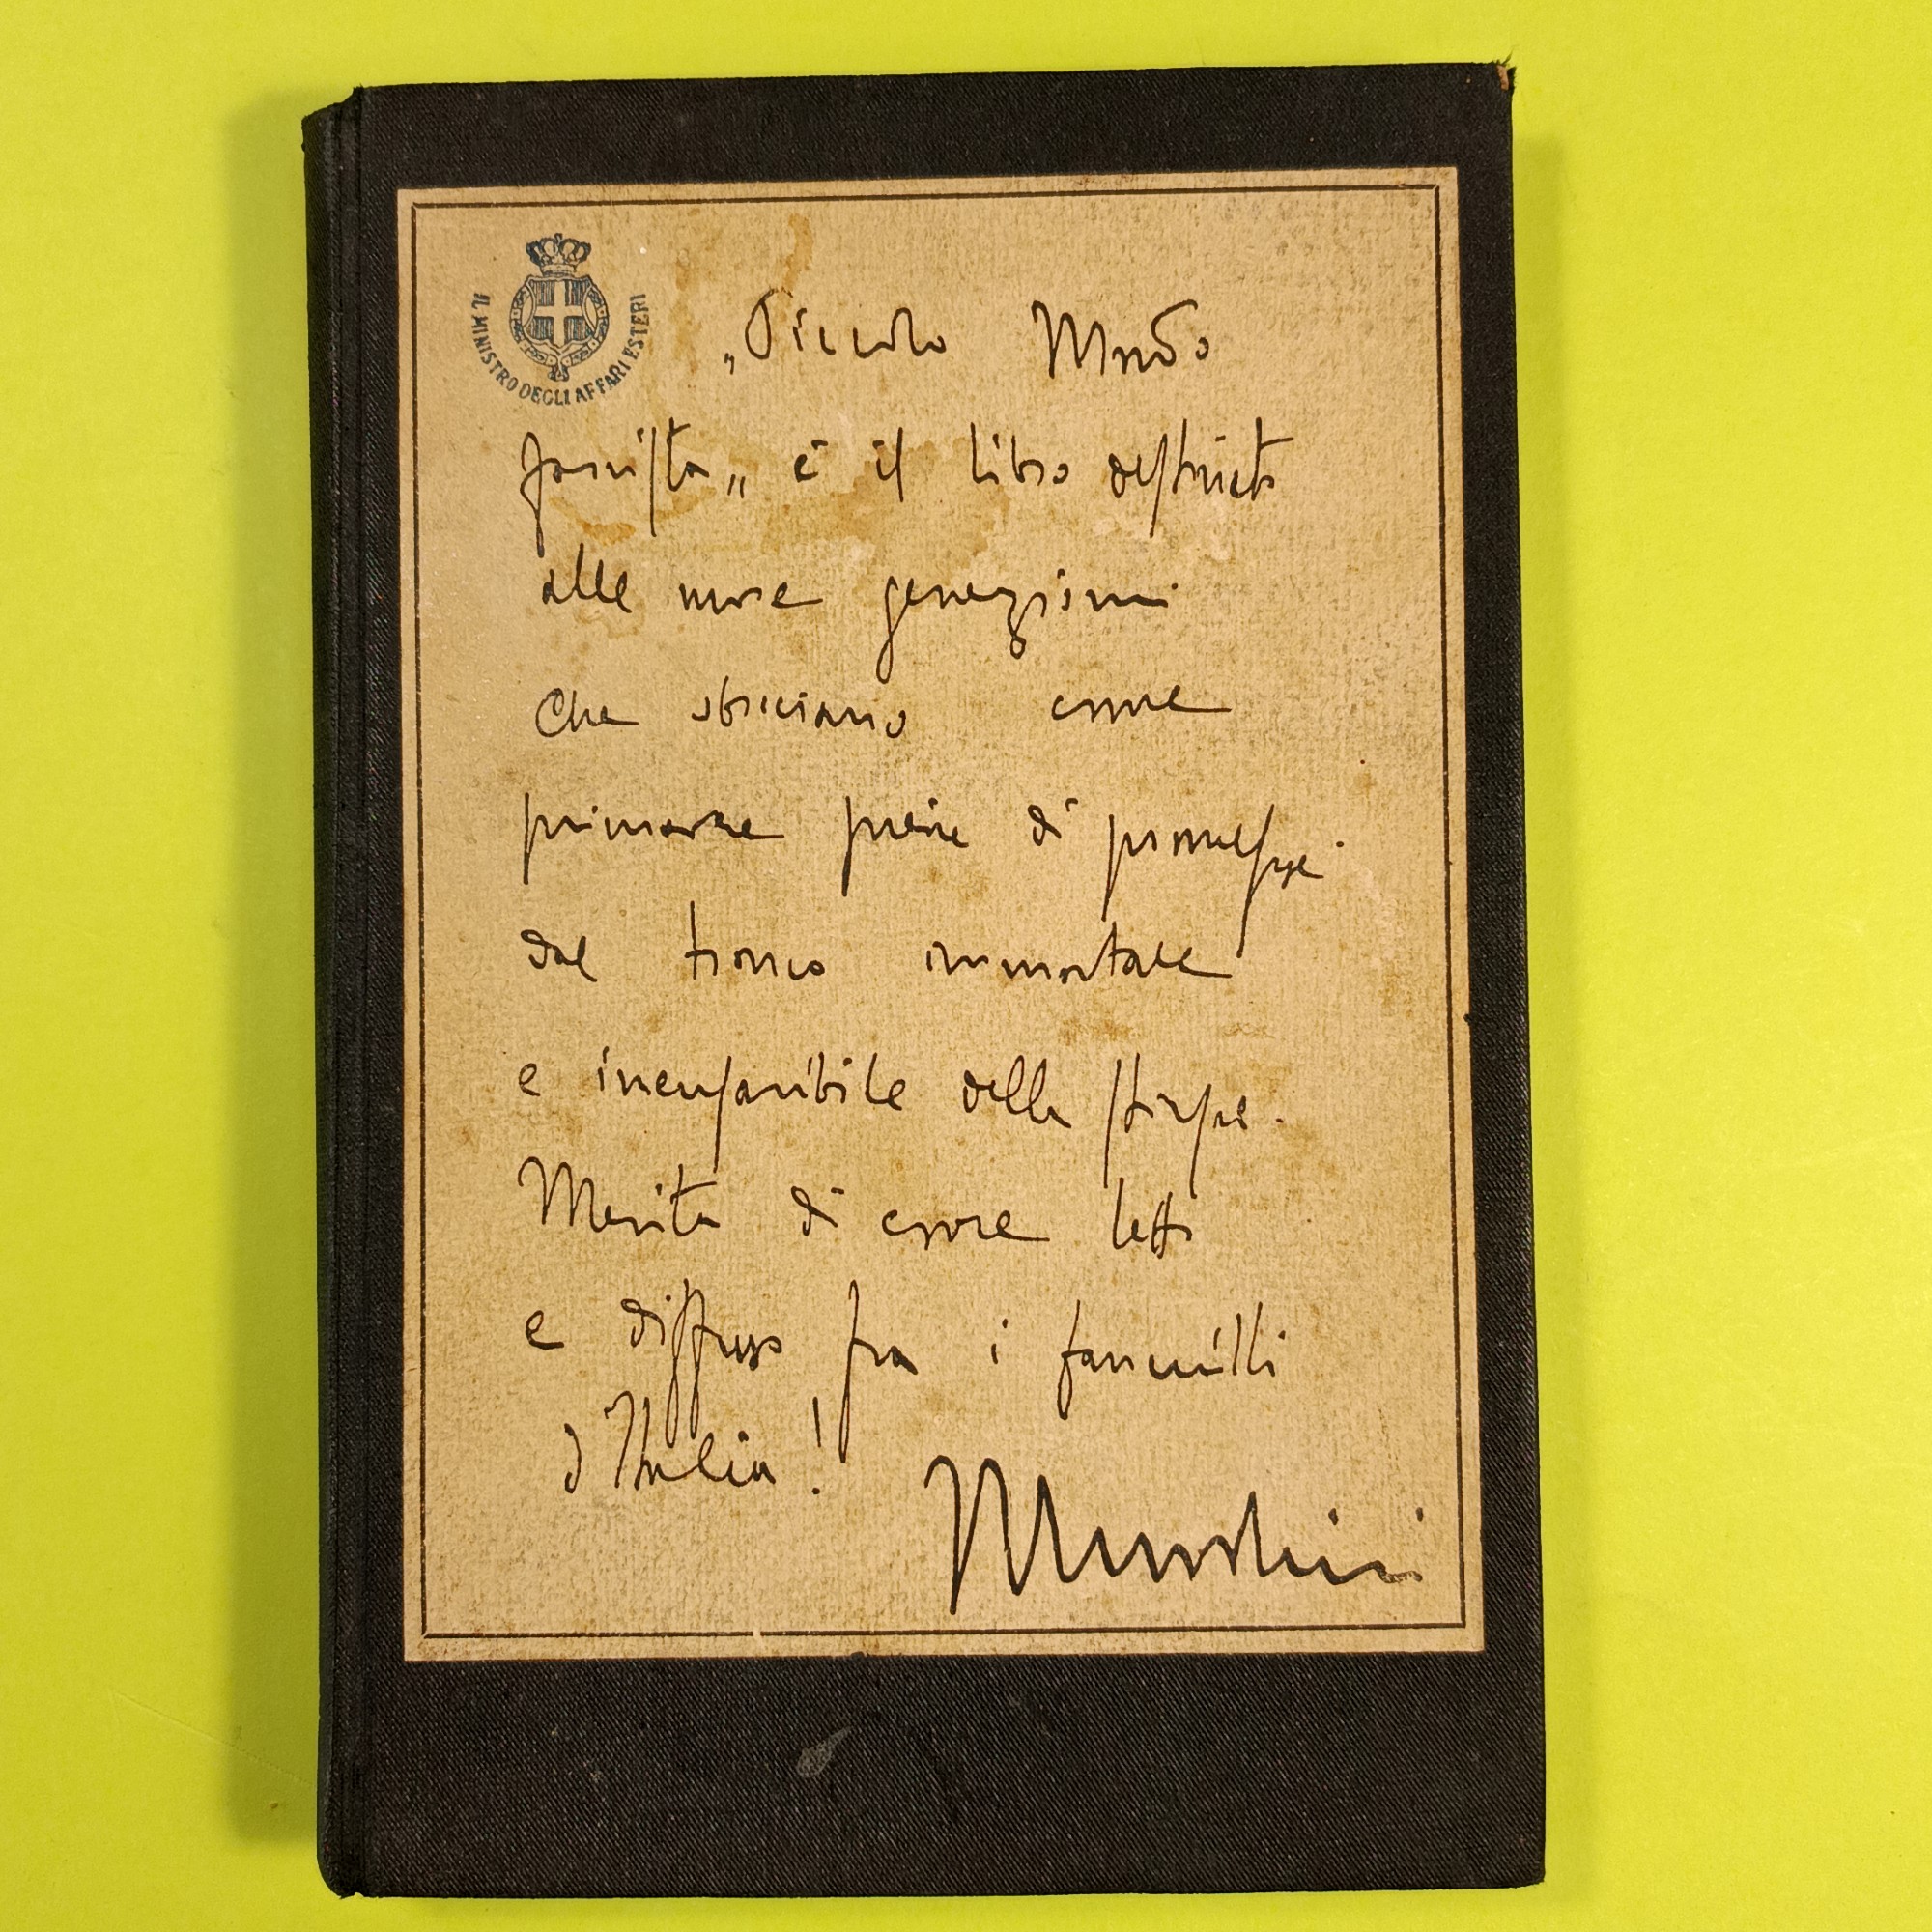 IL MINISTRO DEGLI AFFARI ESTERI
„Piccolo Mondo
fascista„ è il libro destinato
alle nuove generazioni
che sbocciano come
primavere piene di promesse
dal tronco immortale
e inesauribile della stirpe.
Merita di essere letto
e diffuso fra i fanciulli
d'Italia!
Mussolini